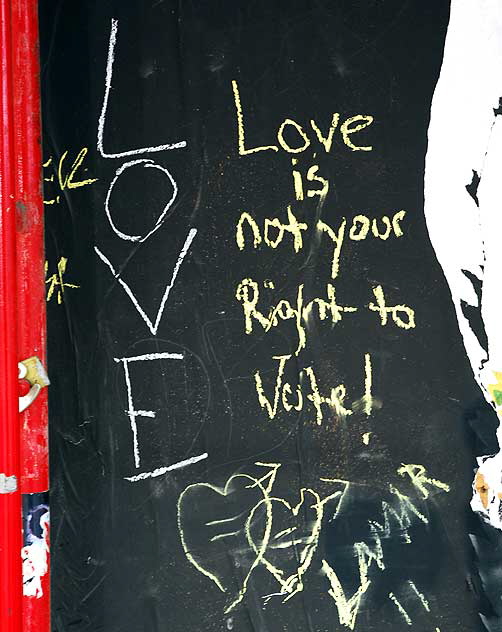 LOVE
Love
is
not your
Right to
Vote!